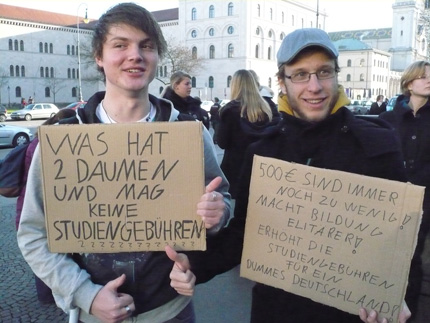 WAS HAT
2 DAUMEN
UND MAG
KEINE
STUDIENGEBÜHREN
? ? ? ? ? ? ? ? ? ? ?
500€ SIND IMMER
NOCH ZU WENIG!
MACHT BILDUNG
ELITÄRER!
ERHÖHT DIE
STUDIENGEBÜHREN
FÜR EIN
DUMMES DEUTSCHLAND!